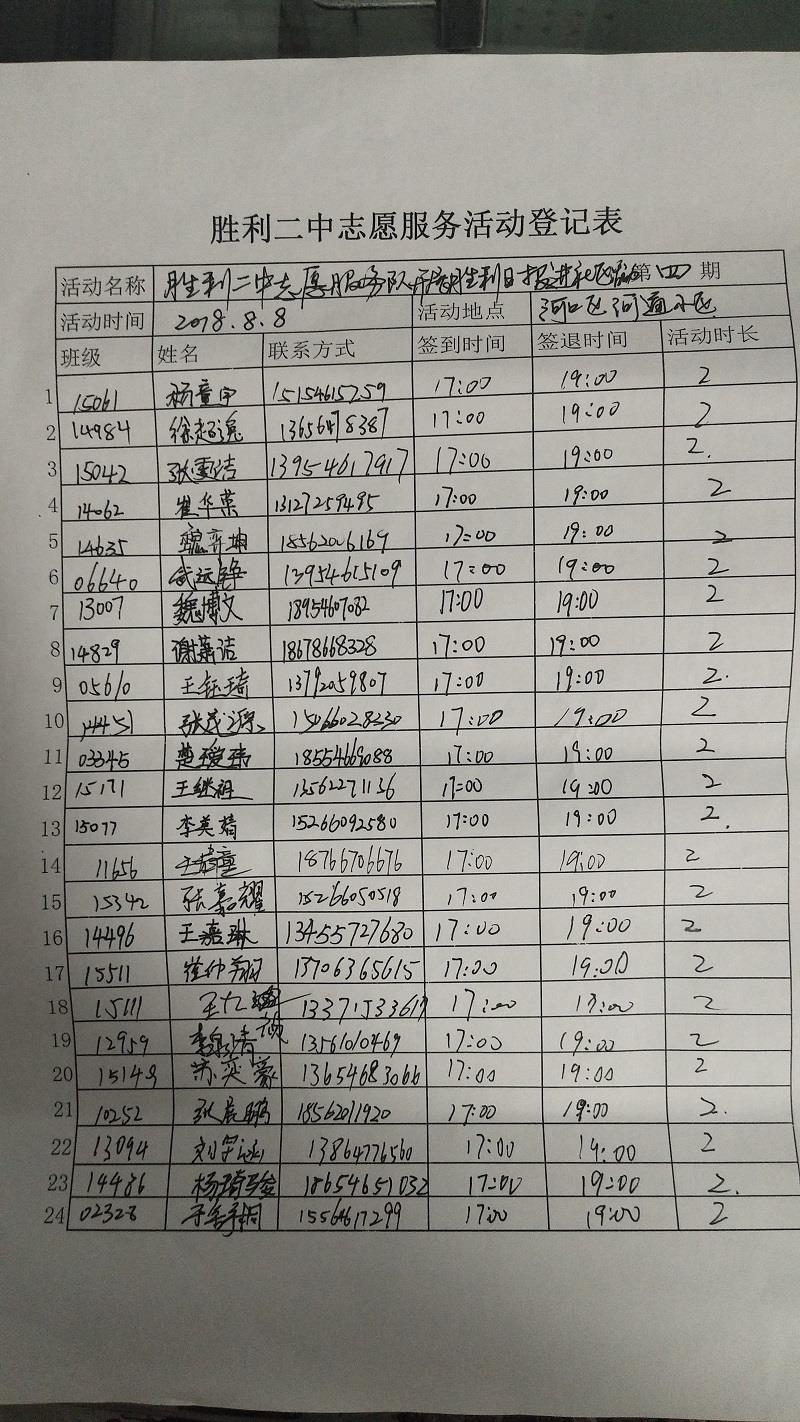 胜利二中志愿服务活动登记表
活动名称 胜利二中志愿服务队开展胜利日报进社区活动第(四)期
活动时间 2018.8.8 活动地点 河口区河通小区
班级 姓名 联系方式 签到时间 签退时间 活动时长
1 15061 杨童甲 15154615259 17:00 19:00 2
2 14984 徐超逸 13656478387 17:00 19:00 2
3 15042 张雯洁 13954617917 17:00 19:00 2.
4 14062 崔华荣 13127259495 17:00 19:00 2
5 14635 魏弈坤 18562006169 17:00 19:00 2
6 06640 13954615109 17:00 19:00 2
7 13007 魏博文 18954607082 17:00 19:00 2
8 14829 谢萧洁 18678668328 17:00 19:00 2
9 05610 王钰琦 13792059807 17:00 19:00 2.
10 14451 张茂源 15066028230 17:00 19:00 2
11 03345 18554669088 17:00 19:00 2
12 15171 王继祖 13562271136 17:00 19:00 2
13 15077 李美婧 15266092580 17:00 19:00 2.
14 11656 18766706676 17:00 19:00 2
15 15342 张嘉耀 15266050518 17:00 19:00 2
16 14496 王嘉琳 13455727680 17:00 19:00 2
17 15511 崔仲翔 13706365615 17:00 19:00 2
18 15111 17:00 19:00 2
19 12959 13561010469 17:00 19:00 2
20 15148 苏奕豪 13654683066 17:00 19:00 2
21 10252 张展鹏 18562011920 17:00 19:00 2.
22 13094 13864776560 17:00 19:00 2
23 14486 杨琦骏 18654651032 17:00 19:00 2.
24 02328 15564617299 17:00 19:00 2